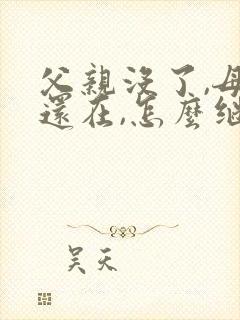 父親沒了,母
還在,怎麼繼
吴天